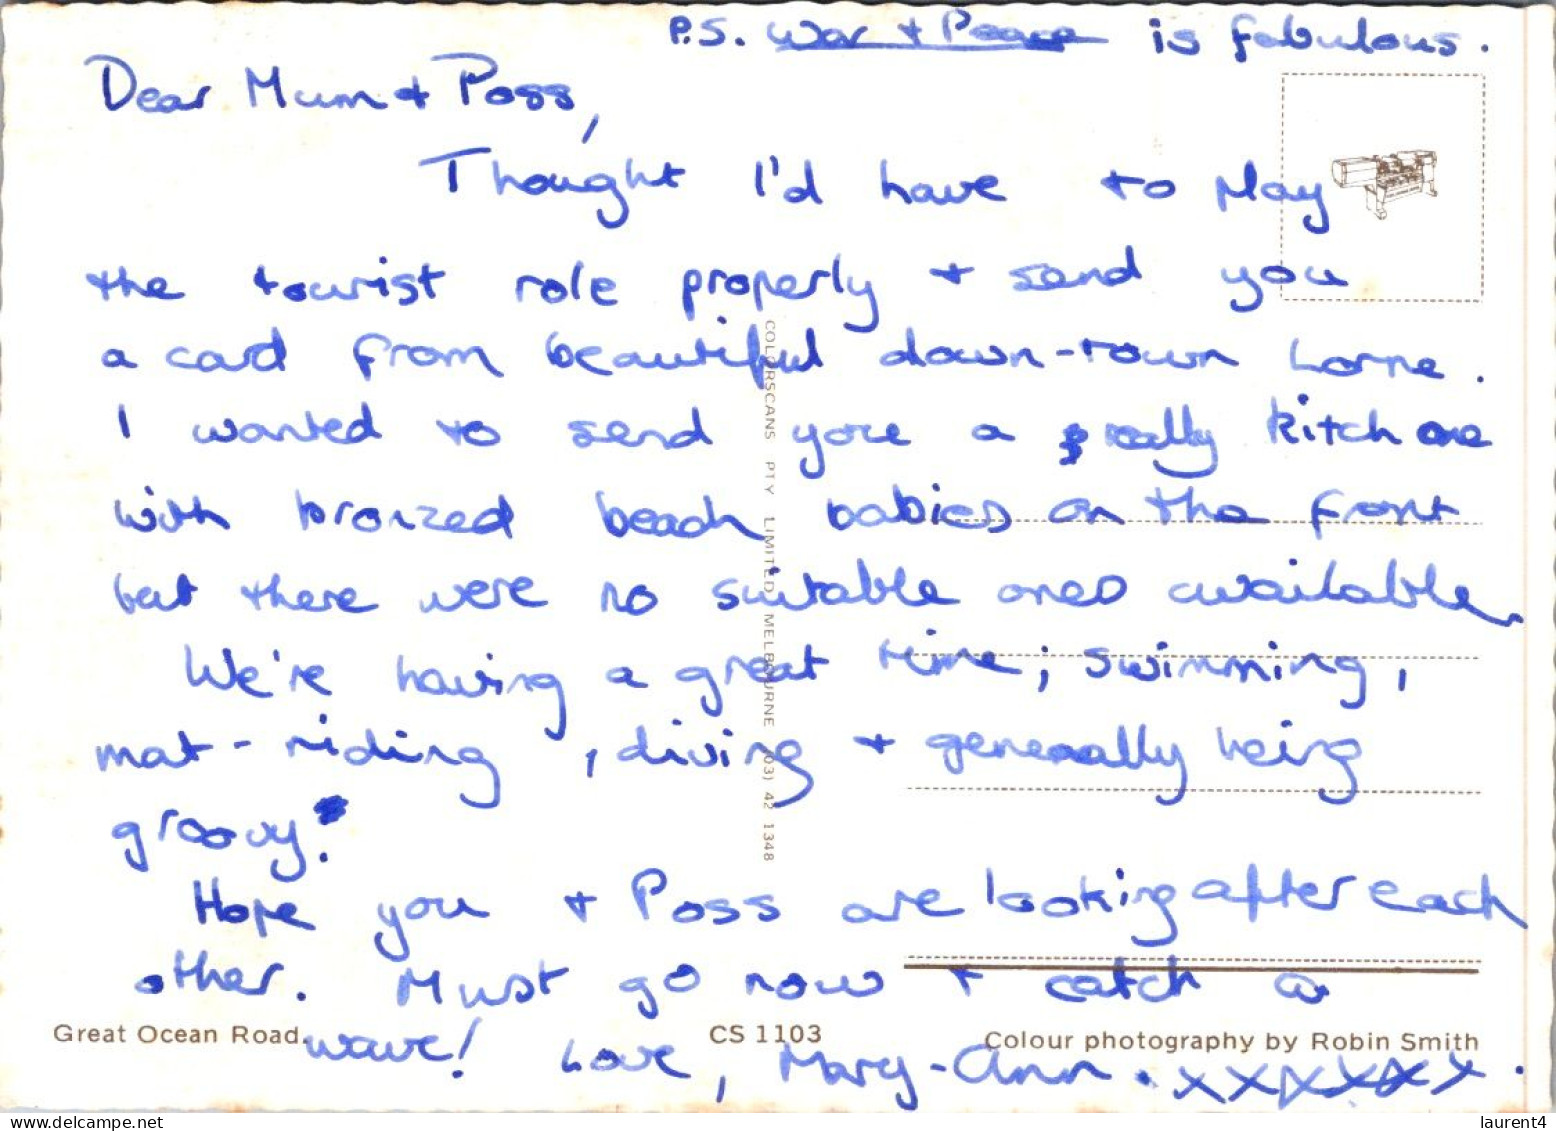 P.S. War + Peace is fabulous.
Dear Mum + Poss,
Thought I'd have to play
the tourist role properly + send you
a card from beautiful down-town Lorne.
I wanted to send you a really kitch one
with bronzed beach babies on the front
but there were no suitable ones available.
We're having a great time; swimming,
mat-riding, diving + generally being
groovy!
Hope you + Poss are looking after each
other. Must go now + catch a
wave! Love, Mary-Ann. xxxxxx.
COLORSCANS PTY LIMITED MELBOURNE (03) 42 1348
Great Ocean Road.
CS 1103
Colour photography by Robin Smith
www.delcampe.net
laurent4